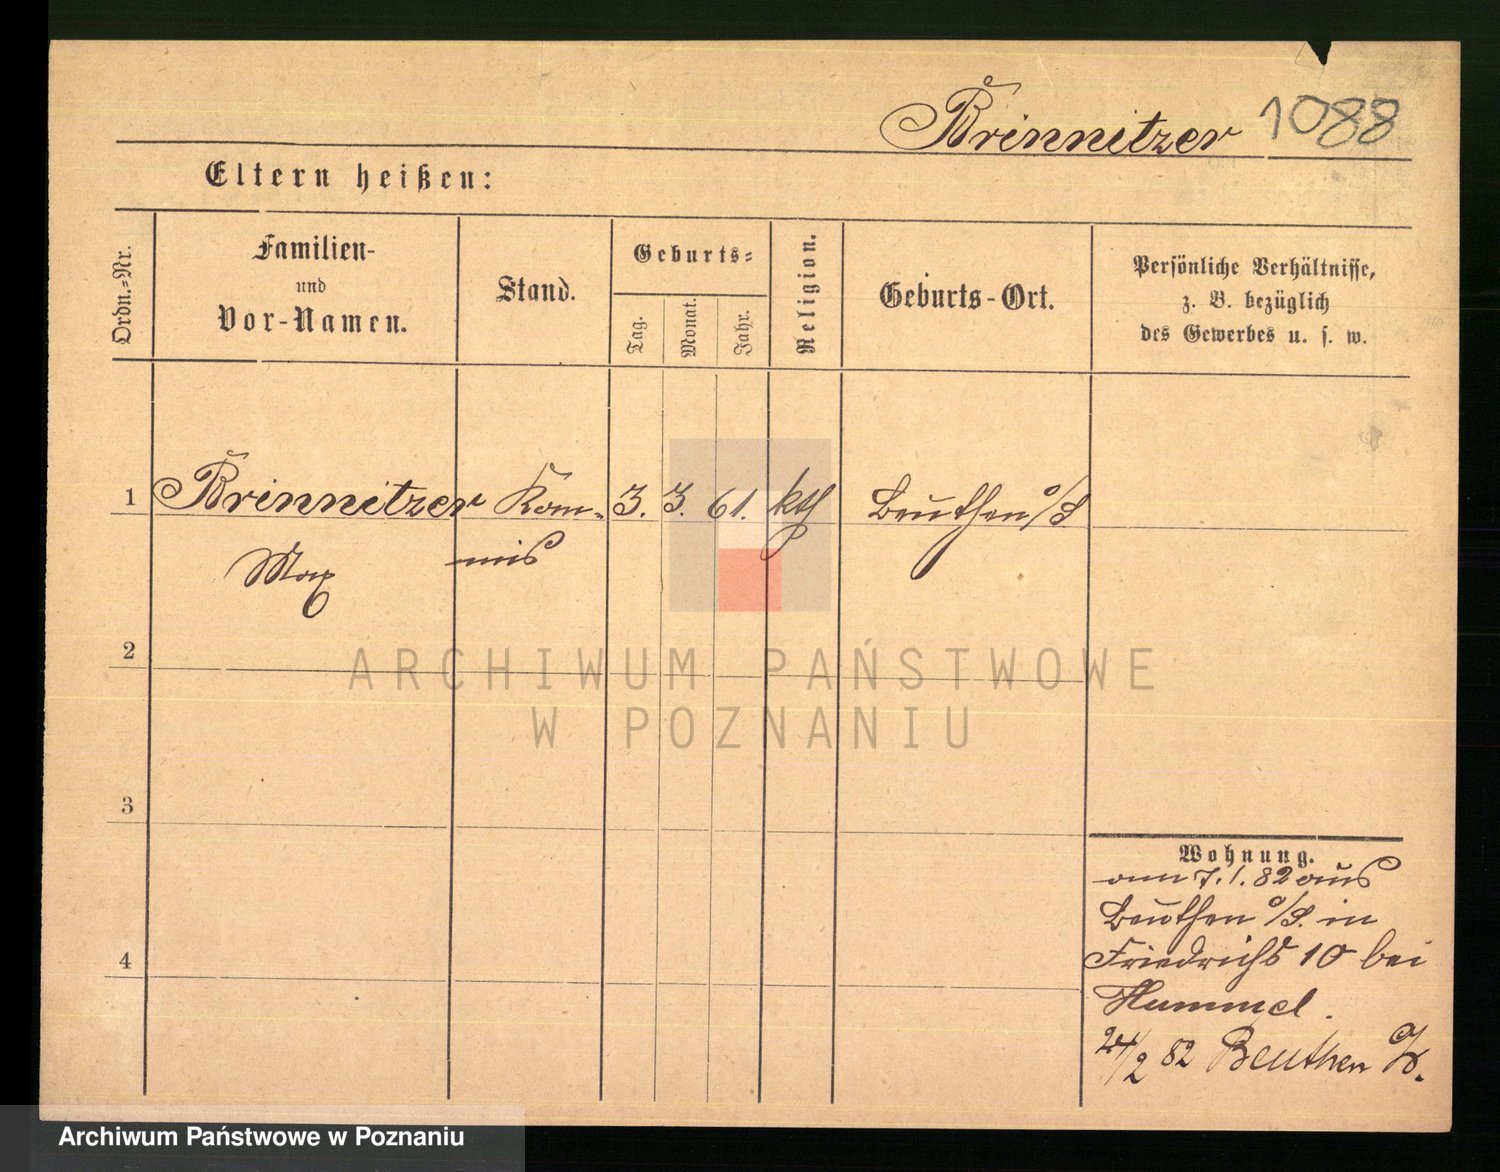 Brinnitzer 1088
Eltern heißen:
Ordn.-Nr.
Familien-
und
Vor-Namen.
Stand.
Geburts-
Tag.
Monat.
Jahr.
Religion.
Geburts-Ort.
Persönliche Verhältnisse,
z. B. bezüglich
des Gewerbes u. s. w.
1 Brinnitzer Kom- 3. 3. 61. kth Beuthen o/S
Max mis
2
3
4
Wohnung.
am 7.1.82 aus
Beuthen o/S. in
Friedrichs 10 bei
Hummel.
24/2 82 Beuthen O/S.
ARCHIWUM PAŃSTWOWE
W POZNANIU
Archiwum Państwowe w Poznaniu